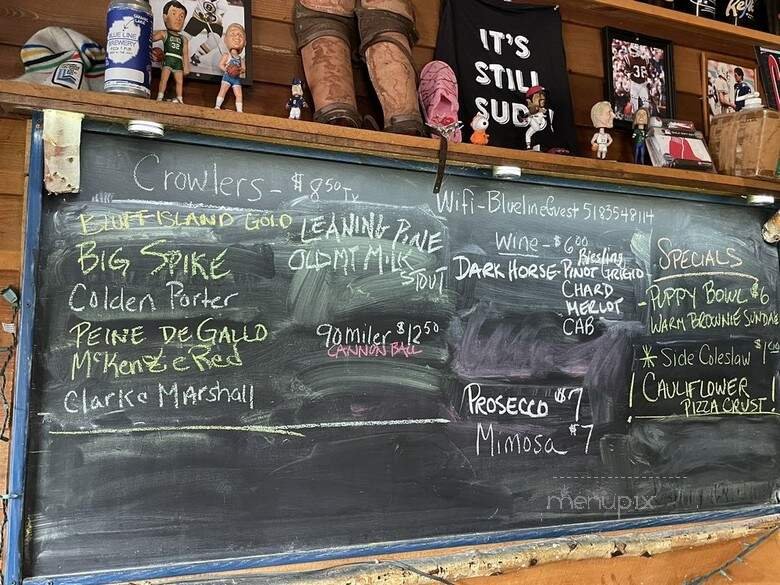 BLUE LINE
BREWERY
IT'S
STILL
SUDS
Crowlers - $8.50
BLUFF ISLAND GOLD
BIG SPIKE
Colden Porter
PEINE DE GALLO
McKenzie Red
Clarke Marshall
LEANING PINE
OLD MT MILK
STOUT
90 miler $12.50
CANNON BALL
Wifi - BluelineGuest 5183548114
WINE - $6.00
Riesling
DARK HORSE - PINOT GRIGIO
CHARD
MERLOT
CAB
PROSECCO $7
Mimosa $7
SPECIALS
- PUPPY BOWL $6
WARM BROWNIE SUNDAE
* Side Coleslaw $1.00
! CAULIFLOWER
PIZZA CRUST !
menupix